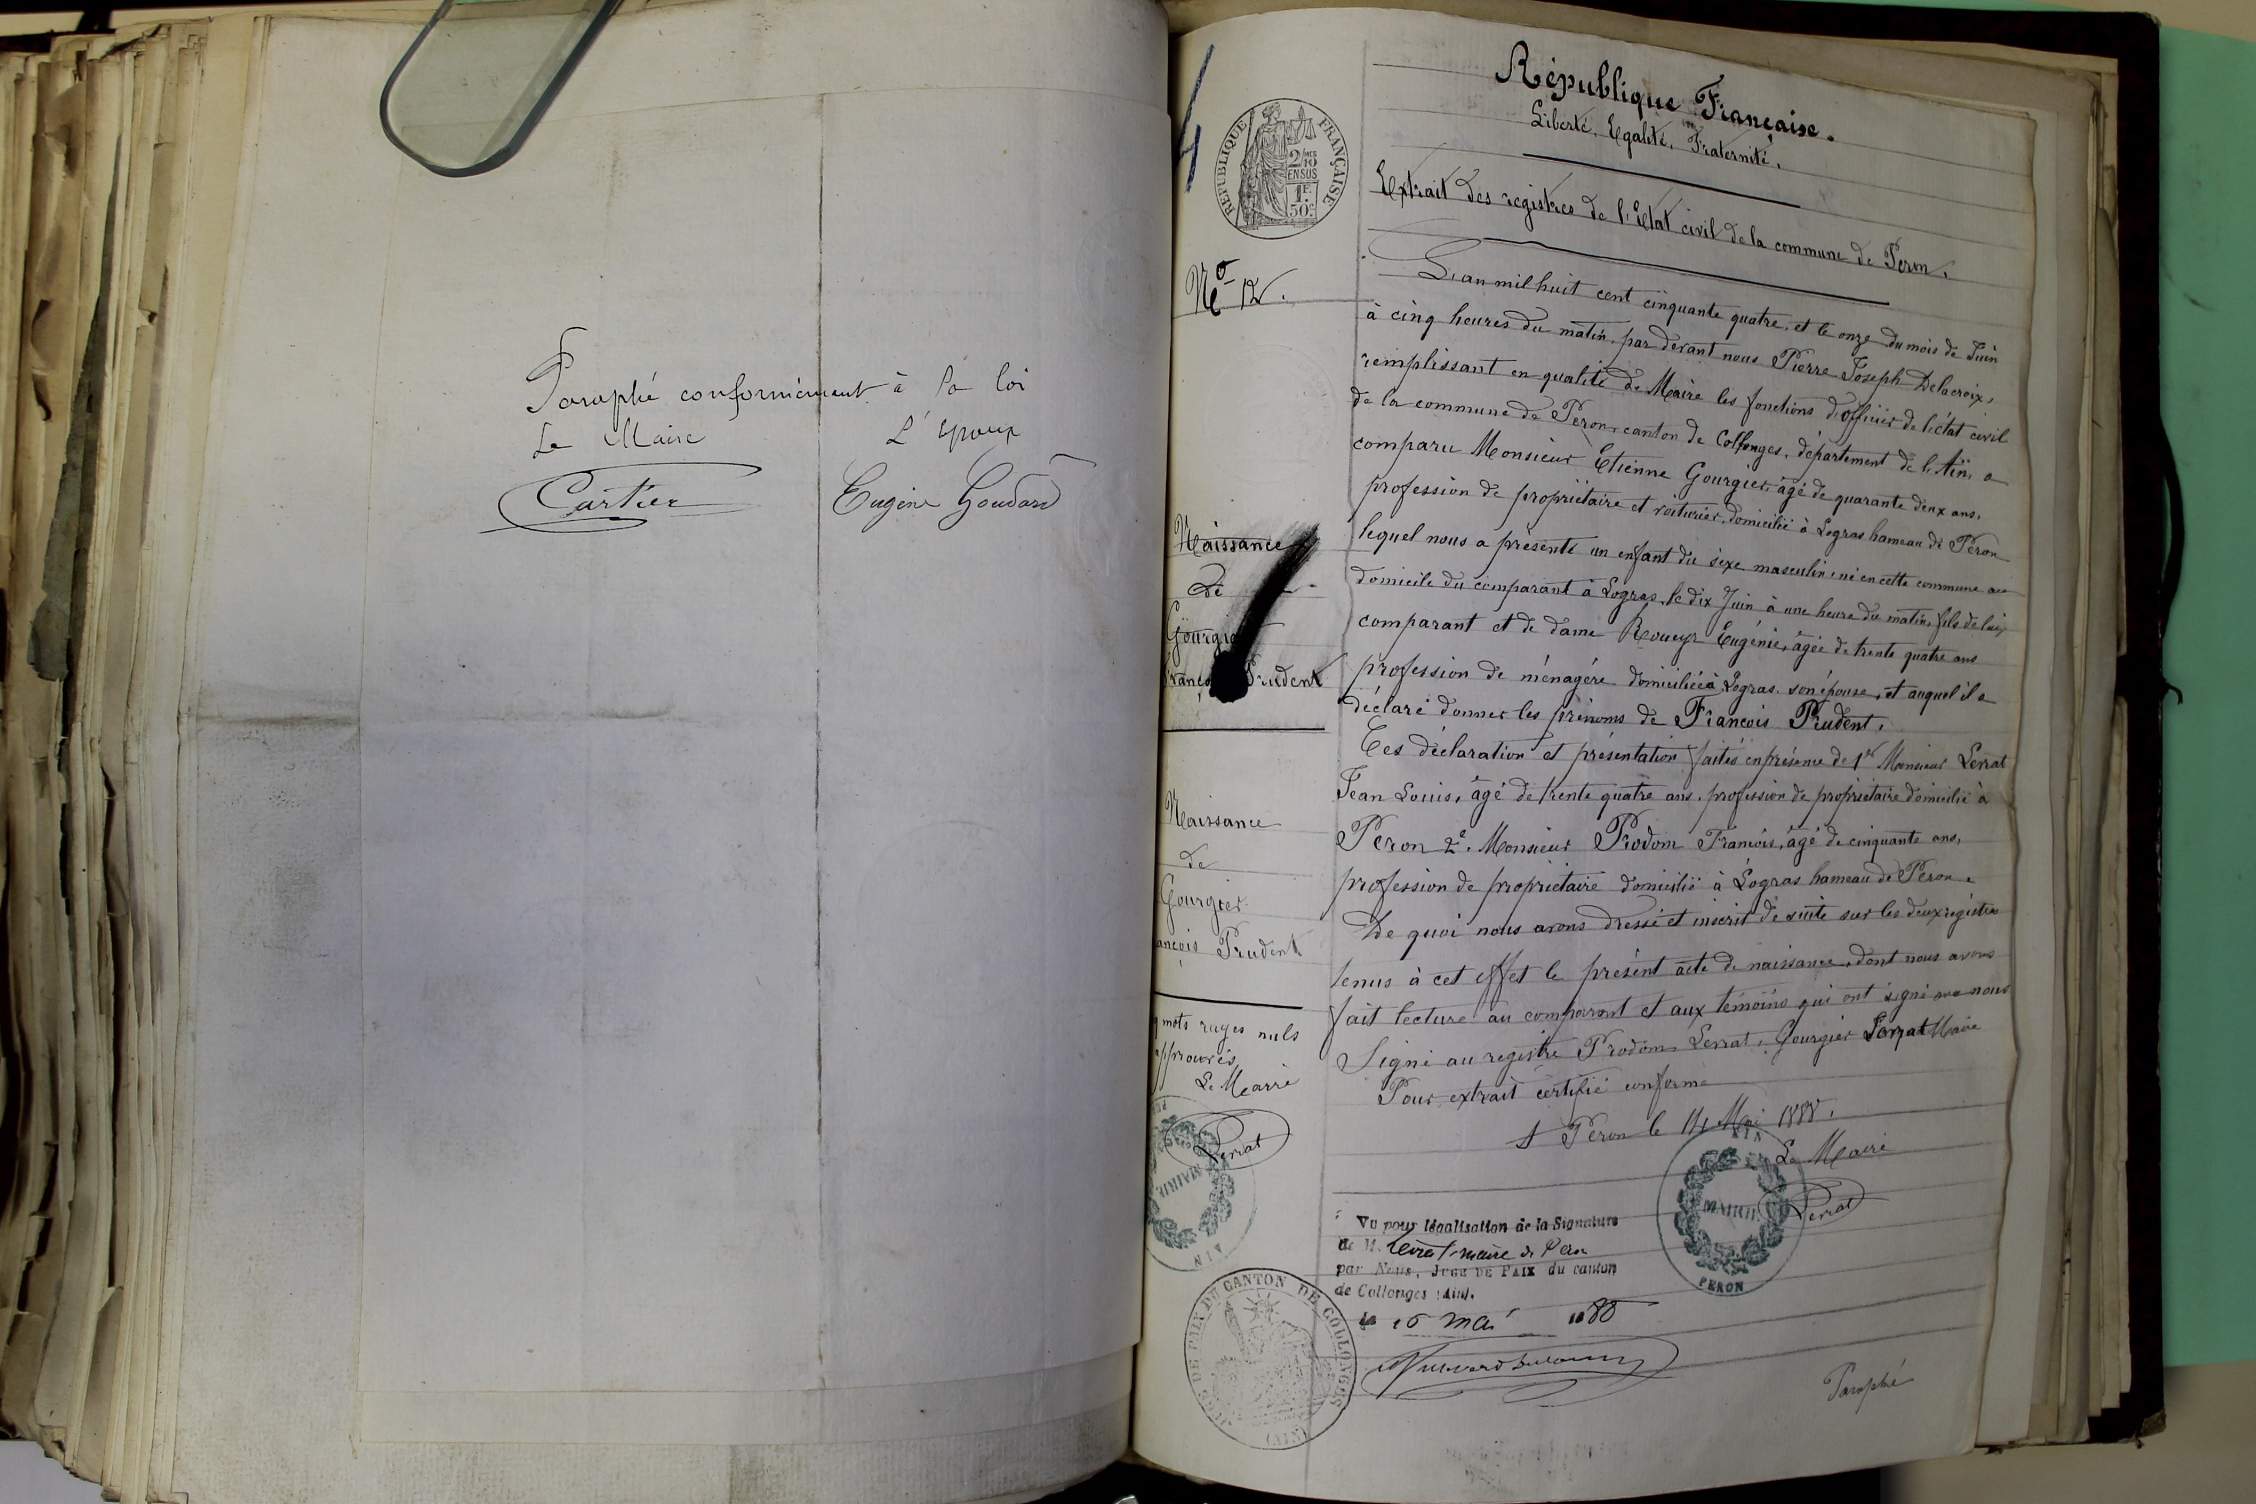 Paraphé conformément à la loi
Le Maire L'époux
Cartier Eugène Goudard
RÉPUBLIQUE FRANÇAISE
2/10
EN SUS
1F.
50c
République Française.
Liberté, Egalité, Fraternité.
Extrait des registres de l'Etat civil de la commune de Péron.
No 12.
L'an mil huit cent cinquante quatre, et le onze du mois de Juin
à cinq heures du matin, par devant nous Pierre Joseph Delacroix,
remplissant en qualité de Maire les fonctions d'officier de l'état civil
de la commune de Péron, canton de Collonges, département de l'Ain, a
comparu Monsieur Etienne Gourgier, âgé de quarante deux ans,
profession de propriétaire et voiturier, domicilié à Logras hameau de Péron
lequel nous a présenté un enfant du sexe masculin, né en cette commune au
domicile du comparant à Logras, le dix Juin à une heure du matin, fils de lui
comparant et de dame Eugénie, âgée de trente quatre ans
profession de ménagère domiciliée à Logras, son épouse, et auquel il a
déclaré donner les prénoms de François Prudent.
Ces déclaration et présentation faites en présence de 1er Monsieur Levrat
Jean Louis, âgé de trente quatre ans, profession de propriétaire domicilié à
Péron 2e Monsieur Prodom François, âgé de cinquante ans,
profession de propriétaire domicilié à Logras hameau de Péron.
De quoi nous avons dressé et inscrit de suite sur les deux registres
tenus à cet effet le présent acte de naissance, dont nous avons
fait lecture au comparant et aux témoins qui ont signé avec nous
Signé au registre Prodom, Levrat, Gourgier Maire
Pour extrait certifié conforme
A Péron le 14 Mai 1888.
Le Maire
Levrat
Naissance
de
Prudent
Naissance
de
Gourgier
ançois Prudent
mots rayés nuls
approuvés
Le Maire
Levrat
MAIRIE
AIN
AIN
MAIRIE
PERON
Vu pour légalisation de la Signature
de M. Levrat maire de Péron
par Nous, JUGE DE PAIX du canton
de Collonges (Ain).
le 16 mai 1888
JUGE DE PAIX DU CANTON DE COLLONGES
(AIN)
Paraphé